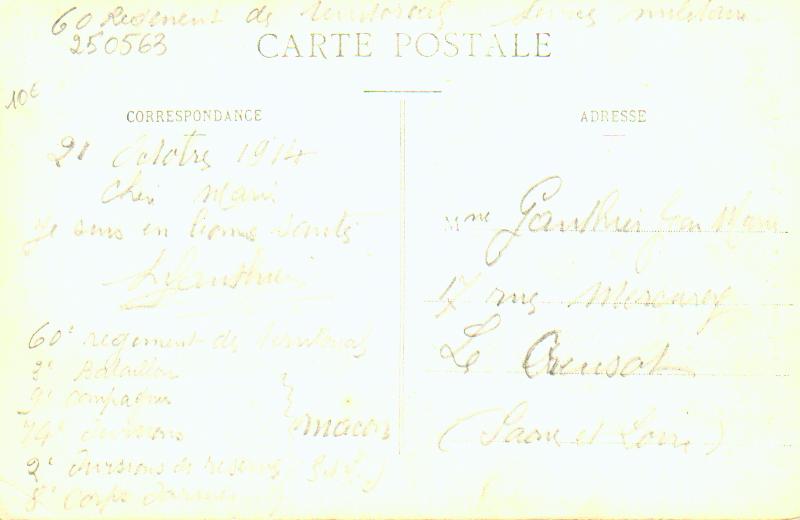 60 Regement de territorial Servis militaire
250563
CARTE POSTALE
10€
CORRESPONDANCE
21 Octobre 1914
Cher Marie
Je suis en bonne santé
Gauthier
60e regement de territorial
3e Bataillon
9e compagnie
74e divisions
macon
2e divisions de reserve (S et L)
8e Corps darmee
ADRESSE
Mme Gauthier Jean Marie
17 rue Mercurey
Le Creusot
(Saone et Loire)